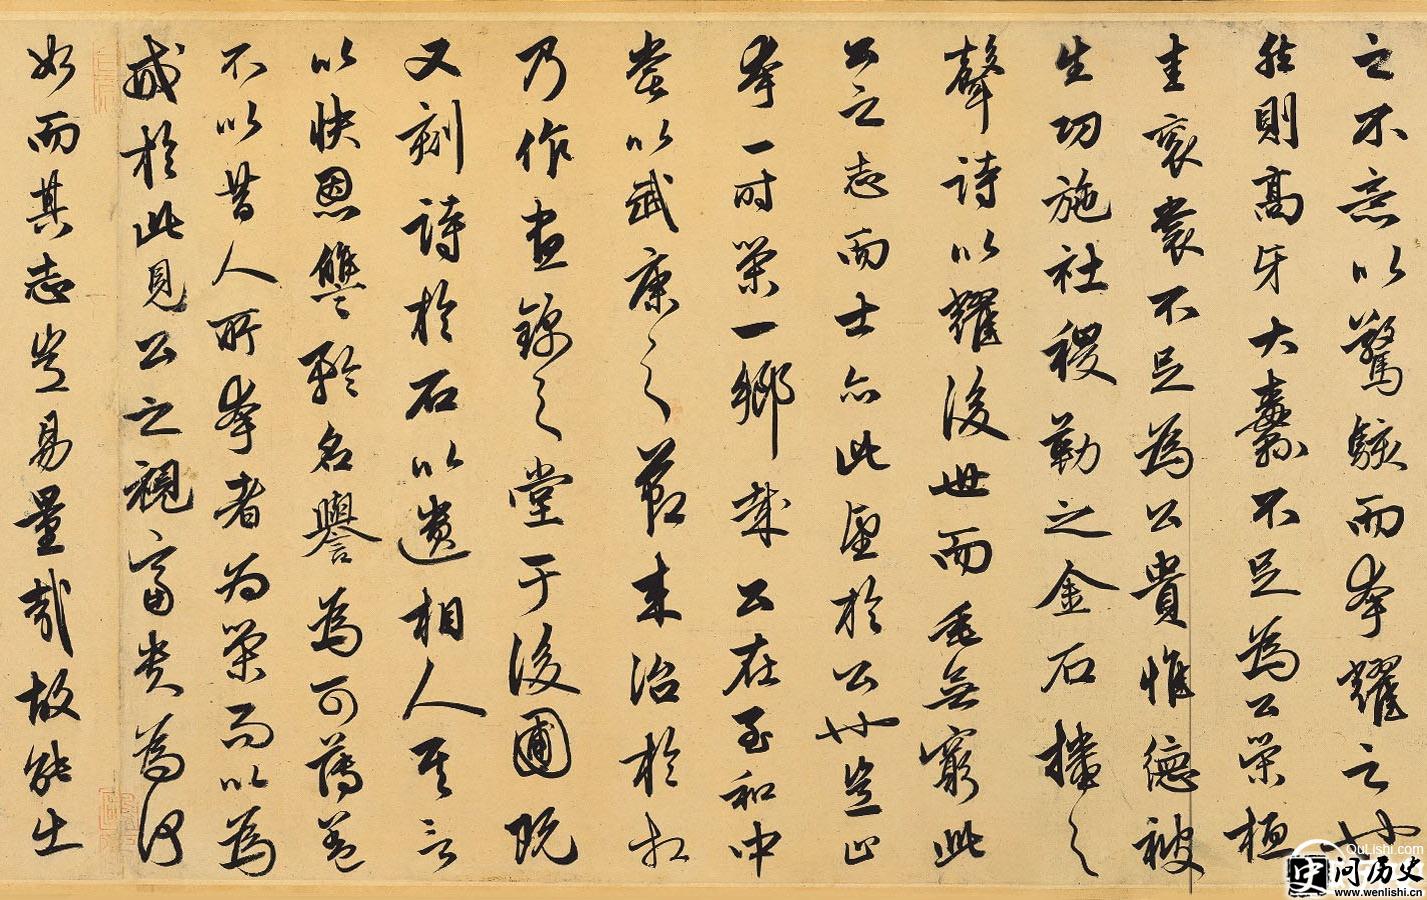 之不意以驚駭而夸耀之也
然則高牙大纛不足為公榮桓
圭袞裳不足為公貴惟德被
生功施社稷勒之金石播之
聲詩以耀後世而垂無窮此
公之志而士亦此望於公也豈止
夸一時榮一鄉哉公在至和中
嘗以武康之節來治於相
乃作晝錦之堂于後圃既
又刻詩於石以遺相人其言
以快恩讐矜名譽為可薄蓋
不以昔人所夸者為榮而以為
戒於此見公之視富貴為何
如而其志豈易量哉故能出
QuLishi.com
史 问历史
www.wenlishi.cn